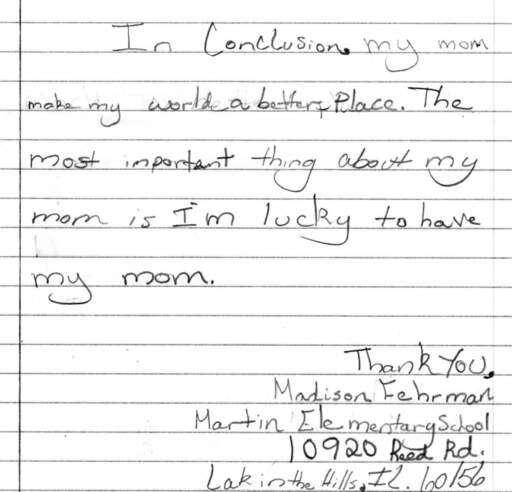 In Conclusion, my mom
make my world a better Place. The
most important thing about my
mom is I'm lucky to have
my mom.
Thank You,
Madison Fehrman
Martin Elementary School
10920 Reed Rd.
Lak in the Hills, IL. 60156